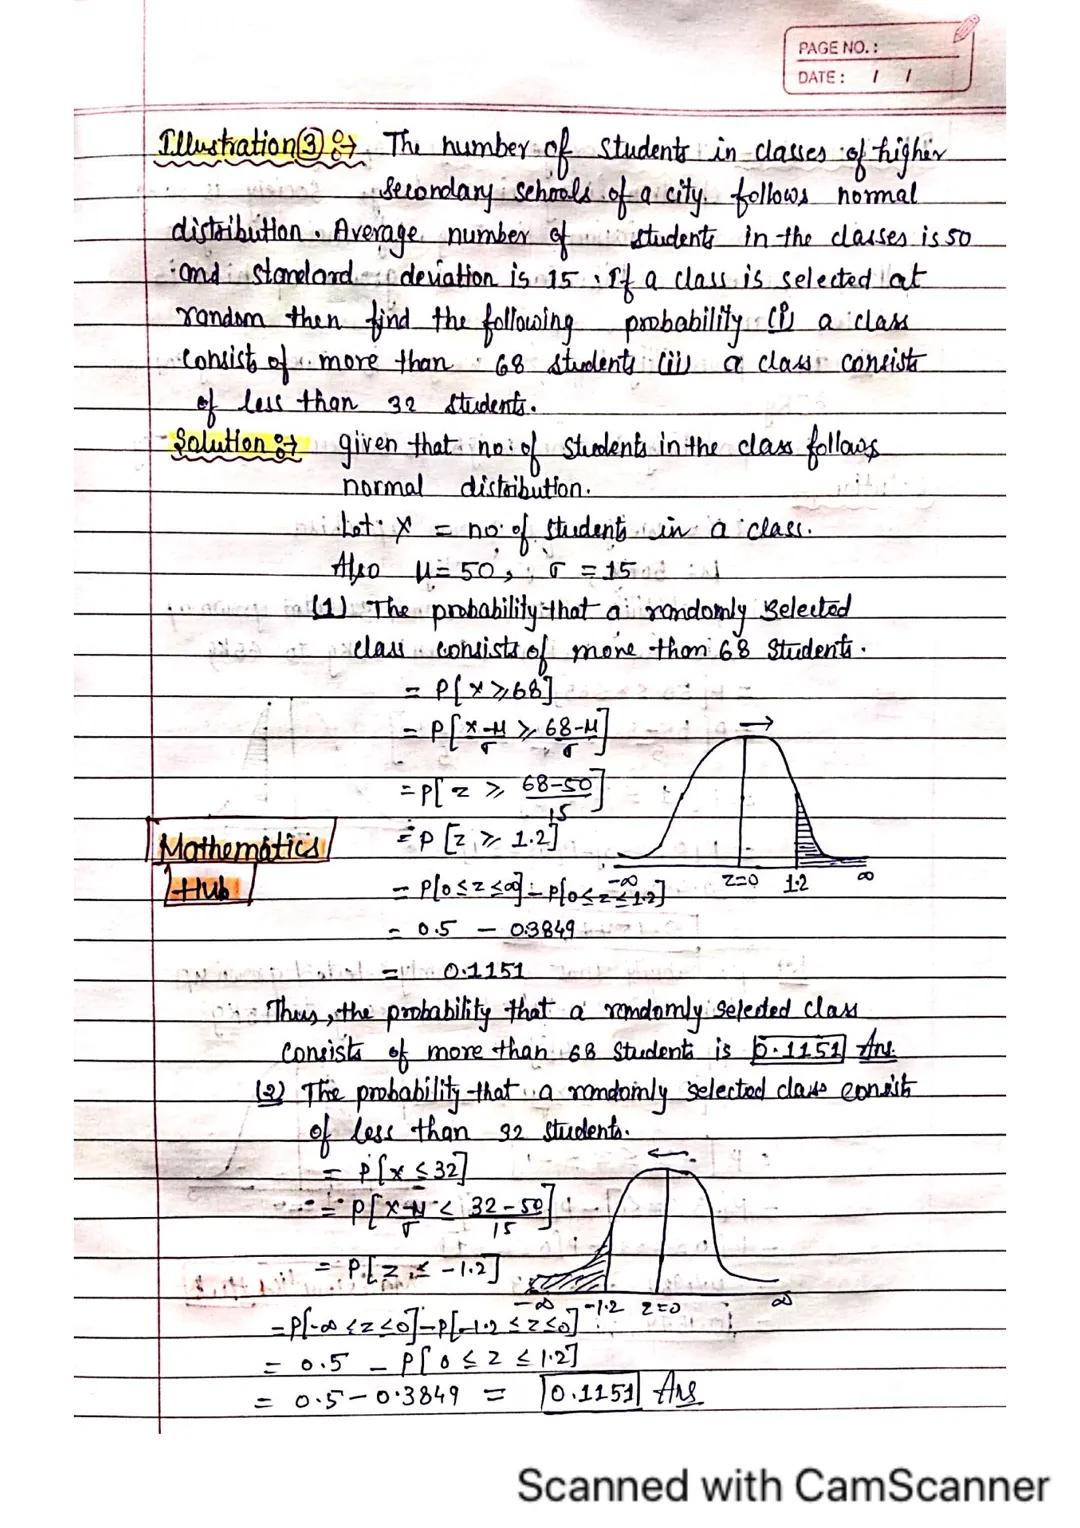 PAGE NO.:
DATE: / /
Illustration ③ :→ The number of students in classes of higher
secondary schools of a city follows normal
distribution. Average number of students in the classes is 50
and standard deviation is 15. If a class is selected at
random then find the following probability (i) a class
consist of more than 68 students (ii) a class consists
of less than 32 students.
Solution :→ given that no. of students in the class follows
normal distribution.
Let X = no. of students in a class.
Also μ = 50, σ = 15
(1) The probability that a randomly selected
class consists of more than 68 students.
= P[x ≥ 68]
= P[(x-μ)/σ ≥ (68-μ)/σ]
= P[z ≥ (68-50)/15]
= P[z ≥ 1.2]
-∞ z=0 1.2 ∞
Mathematics
Hub
= P[0≤z≤∞] - P[0≤z≤1.2]
= 0.5 - 0.3849
= 0.1151
Thus, the probability that a randomly selected class
consists of more than 68 students is 0.1151 Ans.
(2) The probability that a randomly selected class consist
of less than 32 students.
= P[x ≤ 32]
= P[(x-μ)/σ ≤ (32-50)/15]
= P[z ≤ -1.2]
-∞ -1.2 z=0 ∞
= P[-∞ ≤z≤0] - P[-1.2 ≤z≤0]
= 0.5 - P[0 ≤ z ≤ 1.2]
= 0.5 - 0.3849 = 0.1151 Ans
Scanned with CamScanner